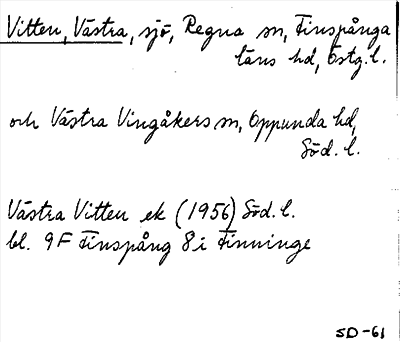 Vitten, Västra, sjö, Regna sn, Finspånga
läns hd, Östg. l.
och Västra Vingåkers sn, Oppunda hd,
Söd. l.
Västra Vitten ek (1956) Söd. l.
bl. 9F Finspång 8i Finninge
SD-61